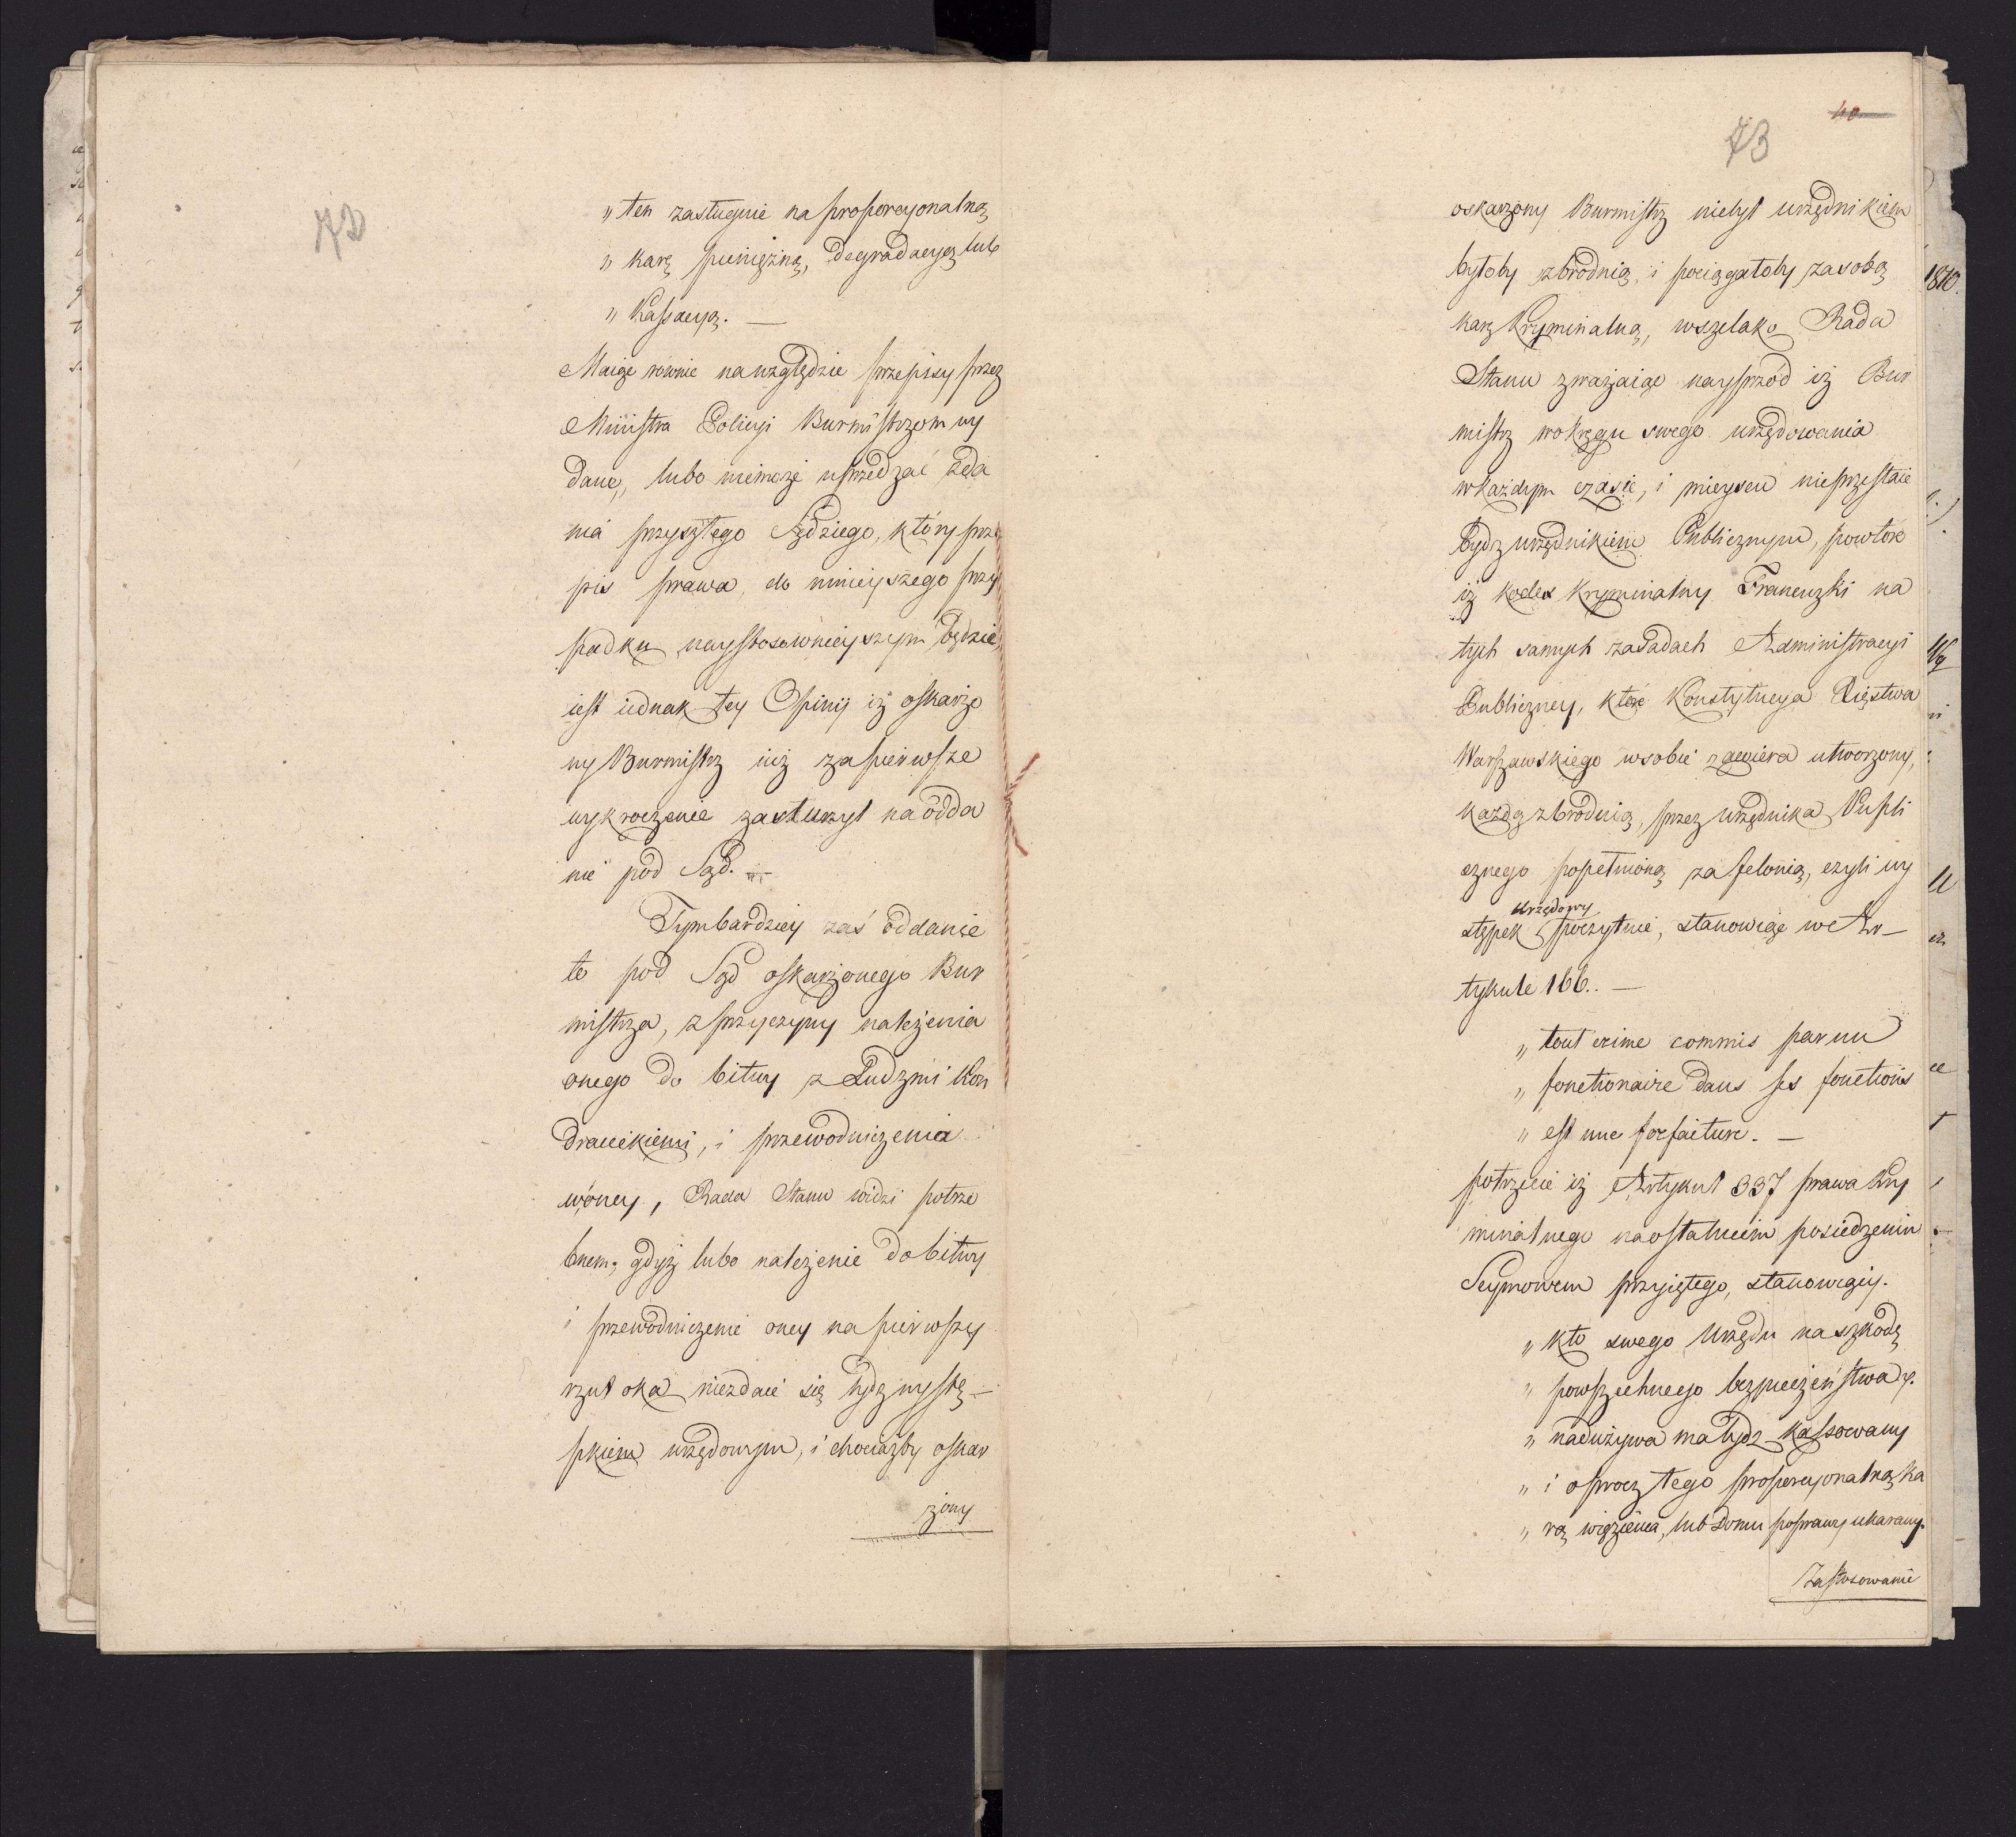 72
„ ten zasługuie na proporcyonalną
„ karę pieniężną, degradacyą lub
„ Kassacyą. —
Maiąc rownie na względzie przepisy przez
Ministra Policyi Burmistrzom wy
dane, lubo niemoże uprzedzać zda
nia przyszłego Sędziego, który prze
pis prawa, do ninieyszego przy
padku naystosownieyszym będzie,
iest iednak tey Opinij iż oskarżo
ny Burmistrz iuż za pierwsze
wykroczenie zasłużył na odda
nie pod Sąd. —
Tymbardziey zaś oddanie
to pod Sąd oskarżonego Bur
mistrza, z przyczyny należenia
onego do bitwy z Ludzmi Kon
drackiemi, i przewodniczenia
w oney, Rada Stanu widzi potrze
bnem, gdyż lubo należenie do bitwy
i przewodniczenie oney na pierwszy
rzut oka niezdaie się bydz wystę —
pkiem urzędowym, i chociażby oskar
żony
40
73
oskarzony Burmistrz niebył urzędnikiem
byłoby zbrodnią, i pociągałoby za sobą
karę Kryminalną, wszelako Rada
Stanu zważaiąc nayprzód iż Bur
mistrz w okręgu swego urzędowania
w każdym czasie, i mieyscu nieprzestaie
bydz urzędnikiem Publicznym, powtóre
iż kodex Kryminalny Francuzki na
tych samych zasadach Administracyi
Publiczney, które Konstytucya Xięstwa
Warszawskiego w sobie zawiera utworzony,
każdą zbrodnią, przez urzędnika Publi
cznego popełnioną za felonią, czyli wy
urzędowy
stępek poczytuie, stanowiąc we Ar —
tykule 166.. —
„ tout crime commis par un
„ fonctionaire dans ses fonctions
„ est une forfaiture. —
potrzecie iż Artykuł 337 prawa Kry
minalnego na ostatniem posiedzeniu
Seymowem przyiętego, stanowiący.
„ kto swego Urzędu na szkodę
„ powszechnego bezpieczeństwa
„ nadużywa ma bydz kassowany
„ i oprocz tego proporcyonalną ka
„ rą więzienia, lub Domu poprawy ukarany.
Zastosowanie
1810.